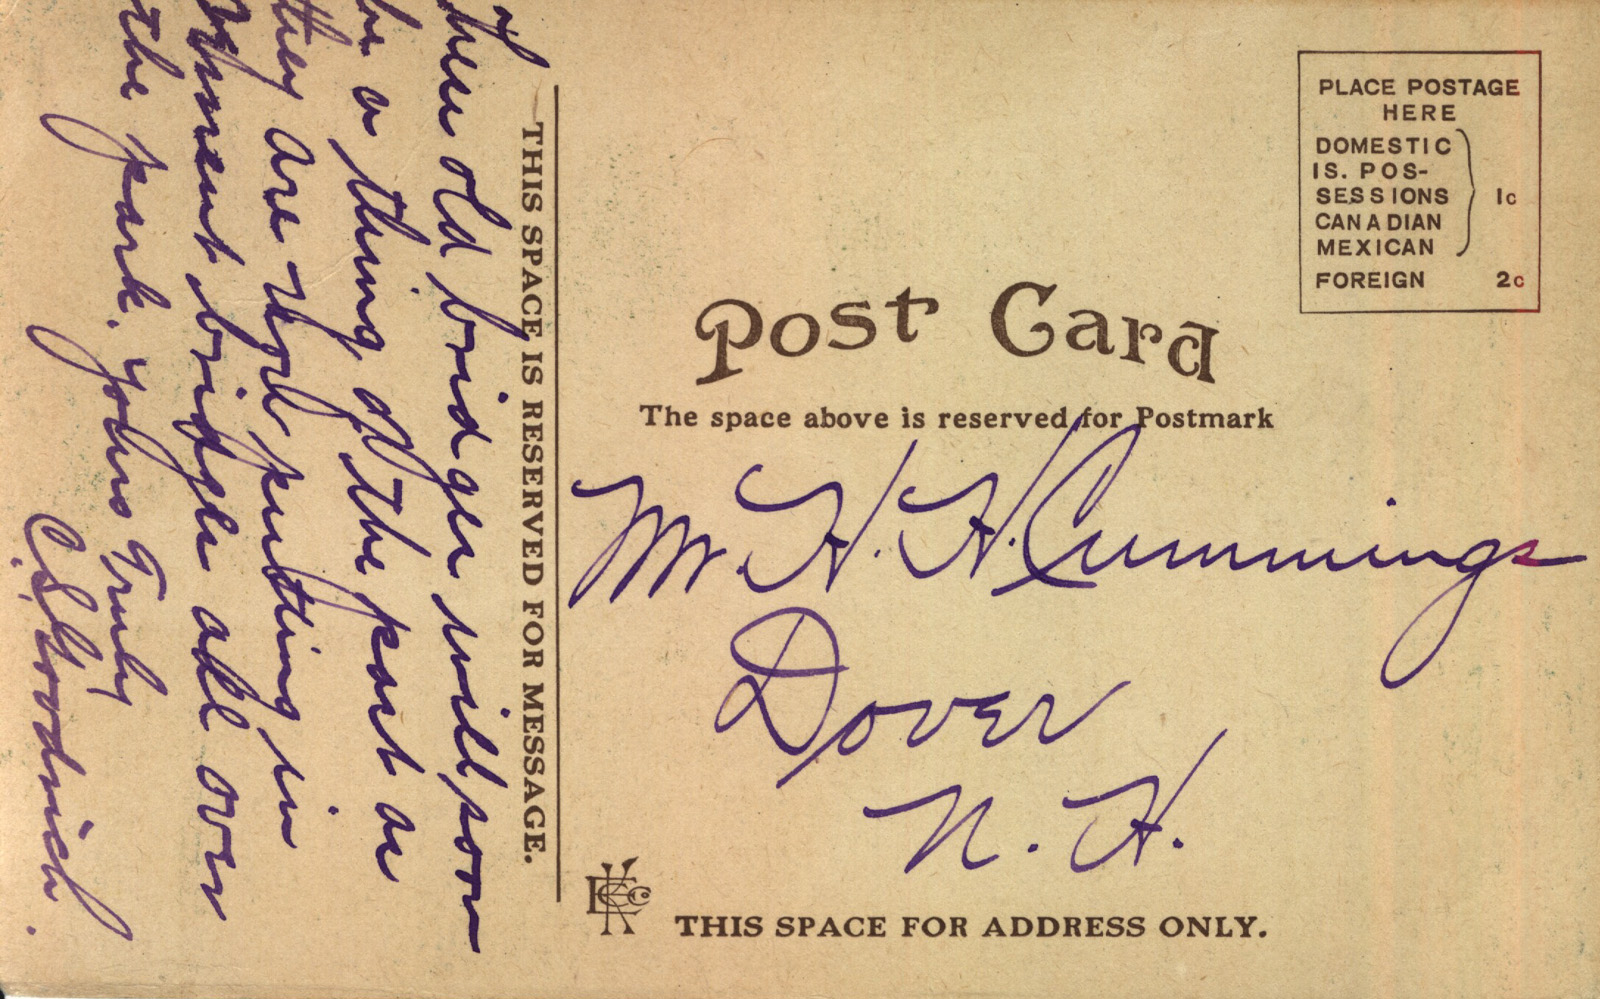 These old bridges will soon
be a thing of the past as
they are now putting in
cement bridges all over
the park. Yours Truly
C.S. Goodrich.
THIS SPACE IS RESERVED FOR MESSAGE.
PLACE POSTAGE
HERE
DOMESTIC
IS. POS-
SESSIONS 1c
CANADIAN
MEXICAN
FOREIGN 2c
Post Card
The space above is reserved for Postmark
Mr. H. H. Cummings
Dover
N. H.
THIS SPACE FOR ADDRESS ONLY.